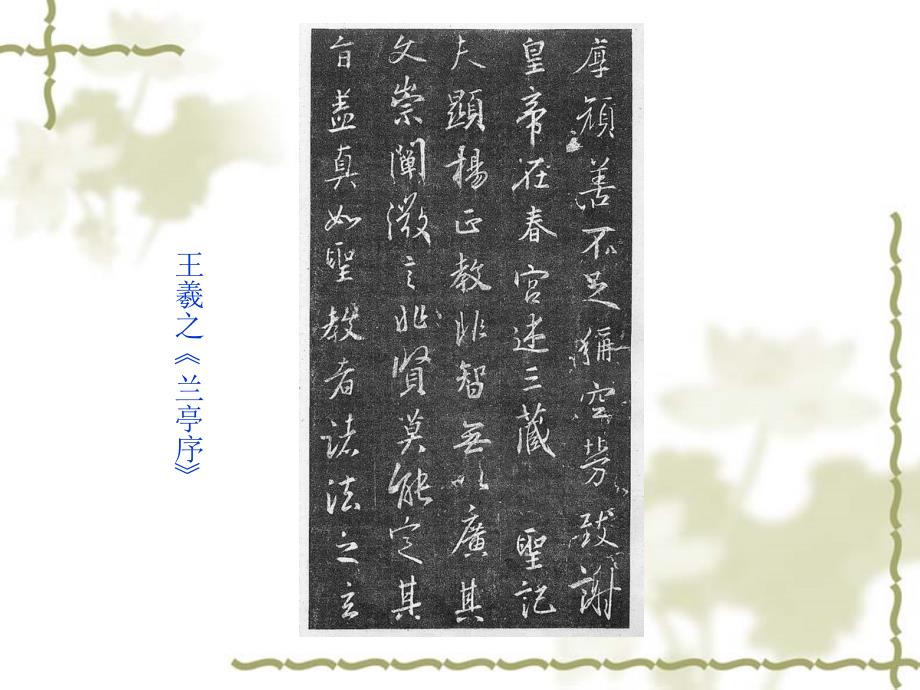 厚顏善不足稱空勞致謝
皇帝在春宮述三藏 聖記
夫顯揚正教非智無以廣其
文崇闡微言非賢莫能定其
旨蓋真如聖教者諸法之玄
王羲之《兰亭序》